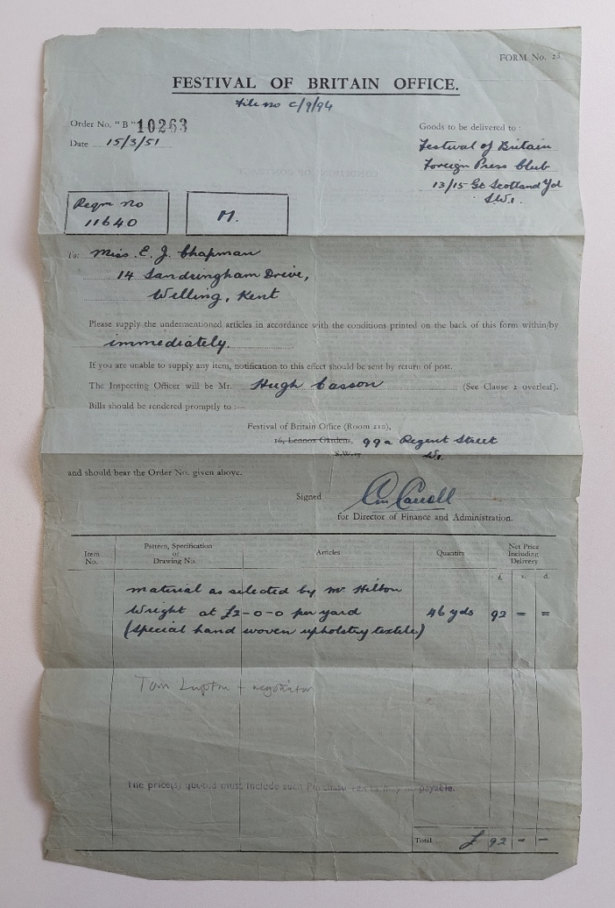 FORM No. 23
FESTIVAL OF BRITAIN OFFICE.
File no C/9/94
Order No. "B" 10263
Date 15/3/51
Goods to be delivered to :
Festival of Britain
Foreign Press Club
13/15 Gt Scotland Yd
S.W.1.
Reqn no
11640
M.
To: Miss. E. J. Chapman
14 Sandringham Drive,
Welling, Kent
Please supply the undermentioned articles in accordance with the conditions printed on the back of this form within/by
immediately.
If you are unable to supply any item, notification to this effect should be sent by return of post.
The Inspecting Officer will be Mr. Hugh Casson (See Clause 2 overleaf).
Bills should be rendered promptly to :—
Festival of Britain Office (Room 210),
16, Lennox Gardens, 99a Regent Street
S.W. W1.
and should bear the Order No. given above.
Signed
for Director of Finance and Administration.
Item No.
Pattern, Specification or Drawing No.
Articles
Quantity
Net Price Including Delivery
£ s. d.
material as selected by Mr Hilton
Wright at £2-0-0 per yard 46 yds 92 - -
(special hand woven upholstry textile)
Tom Lupton + negotiator
The price(s) quoted must include such Purchase Tax as may be payable.
Total £ 92 - -